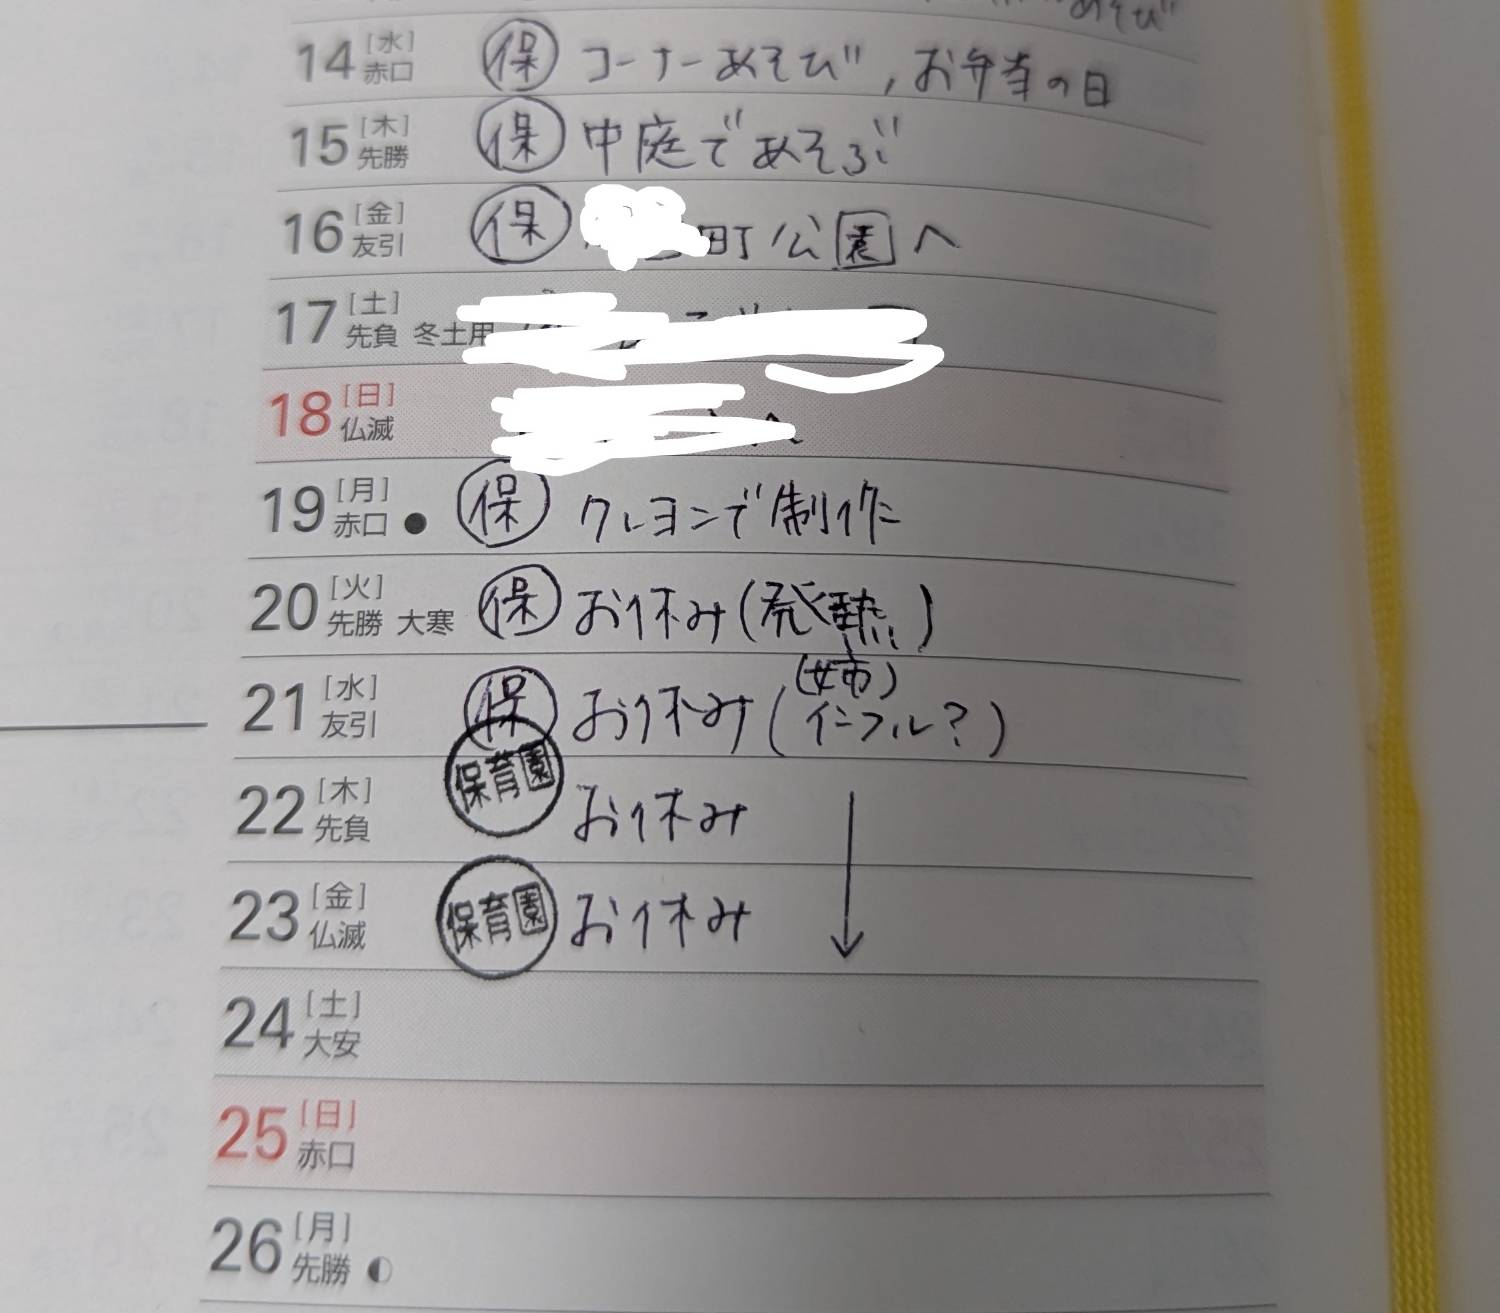 あそび
14 [水] 赤口 保 コーナーあそび, お弁当の日
15 [木] 先勝 保 中庭であそぶ
16 [金] 友引 保 町公園へ
17 [土] 先負 冬土用
18 [日] 仏滅 へ
19 [月] 赤口 ● 保 クレヨンで制作
20 [火] 先勝 大寒 保 お休み(発熱)
(姉)
21 [水] 友引 保 お休み(インフル?)
22 [木] 先負 保育園 お休み
23 [金] 仏滅 保育園 お休み
24 [土] 大安
25 [日] 赤口
26 [月] 先勝